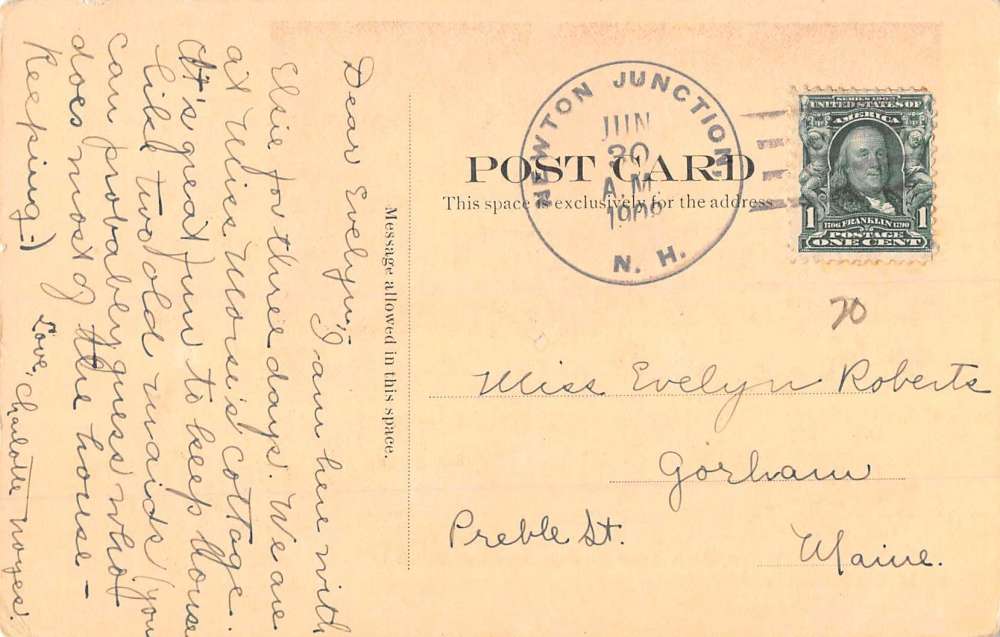 Dear Evelyn;- I am here with
Elsie for three days. We are
at Miss Morse's cottage.
It's great fun to keep house
like two old maids (you
can probabley guess who
does most of the house -
keeping-)
Love, Charlotte Noyes.
Message allowed in this space.
POST CARD
This space is exclusively for the address
NEWTON JUNCTION,
JUN
20
A.M
1908
N. H.
SERIES 1902
UNITED STATES OF
AMERICA
1 1706 FRANKLIN 1790 1
POSTAGE
ONE CENT
70
Miss Evelyn Roberts
Gorham
Preble St.
Maine.